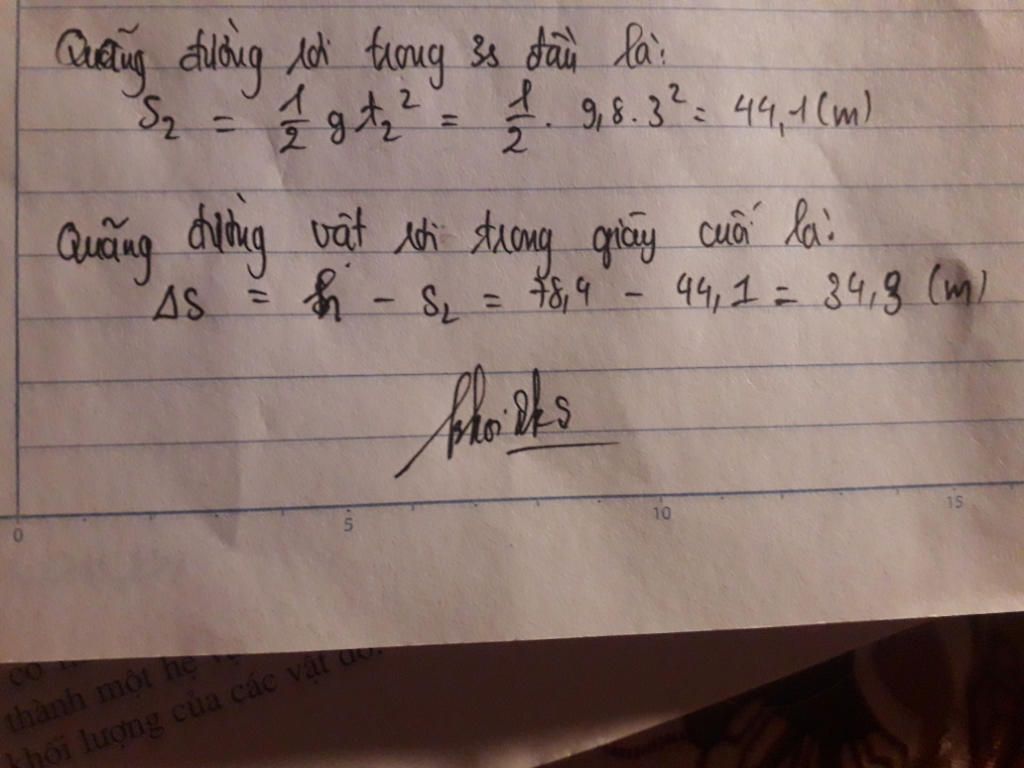 Quãng đường rơi trong 3s đầu là:
S₂ = 1/2 g t₂² = 1/2 . 9,8 . 3² = 44,1 (m)
Quãng đường vật rơi trong giây cuối là:
ΔS = h - S₂ = 78,4 - 44,1 = 34,3 (m)
0 5 10 15
thành một hệ
khối lượng của các vật đó.